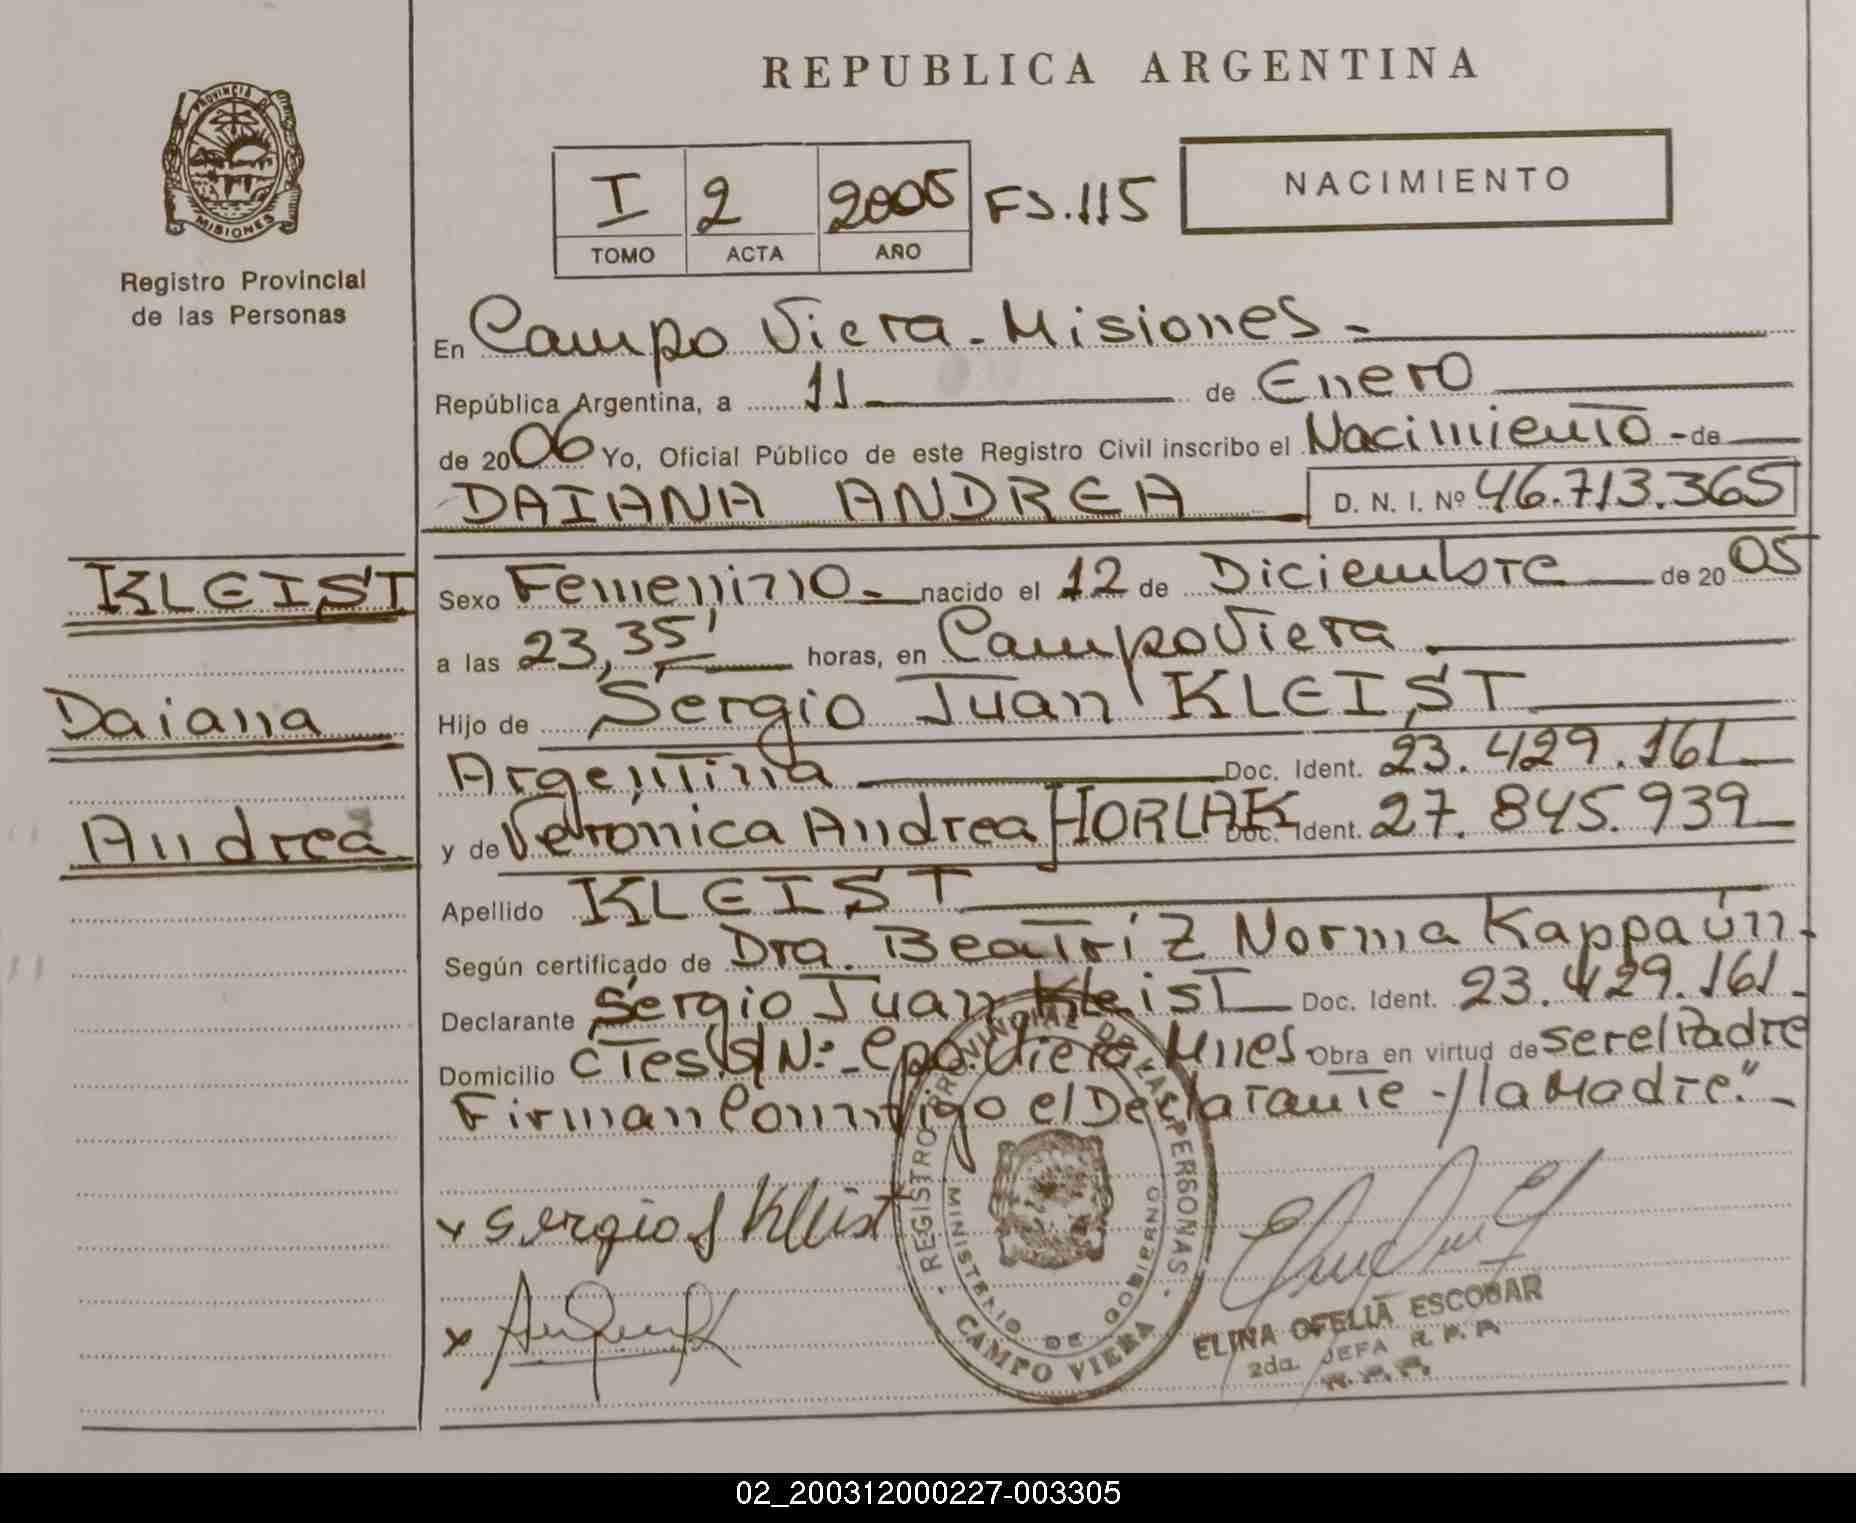 REPUBLICA ARGENTINA
PROVINCIA DE
MISIONES
Registro Provincial
de las Personas
I 2 2005 FS.115
TOMO ACTA AÑO
NACIMIENTO
En Campo Viera - Misiones -
República Argentina, a 11 de Enero
de 2006 Yo, Oficial Público de este Registro Civil inscribo el Nacimiento - de
DAIANA ANDREA D. N. I. Nº 46.713.365
KLEIST
Daiana
Andrea
Sexo Femenino - nacido el 12 de Diciembre de 2005
a las 23,35' horas, en Campo Viera
Hijo de Sergio Juan KLEIST
Argentina Doc. Ident. 23.429.161
y de Verónica Andrea HORLAK Doc. Ident. 27.845.939
Apellido KLEIST
Según certificado de Dra. Beatriz Norma Kappaún.
Declarante Sergio Juan Kleist Doc. Ident. 23.429.161 -
Domicilio CTes. S/Nº - Cpo. Viera Mnes Obra en virtud de ser el Padre
Firman Conmigo el Declarante - / la Madre." -
x Sergio J Kleist
x
REGISTRO PROVINCIAL DE LAS PERSONAS
MINISTERIO DE GOBIERNO
CAMPO VIERA
ELINA OFELIA ESCOBAR
2da. JEFA R. P. P.
02_200312000227-003305